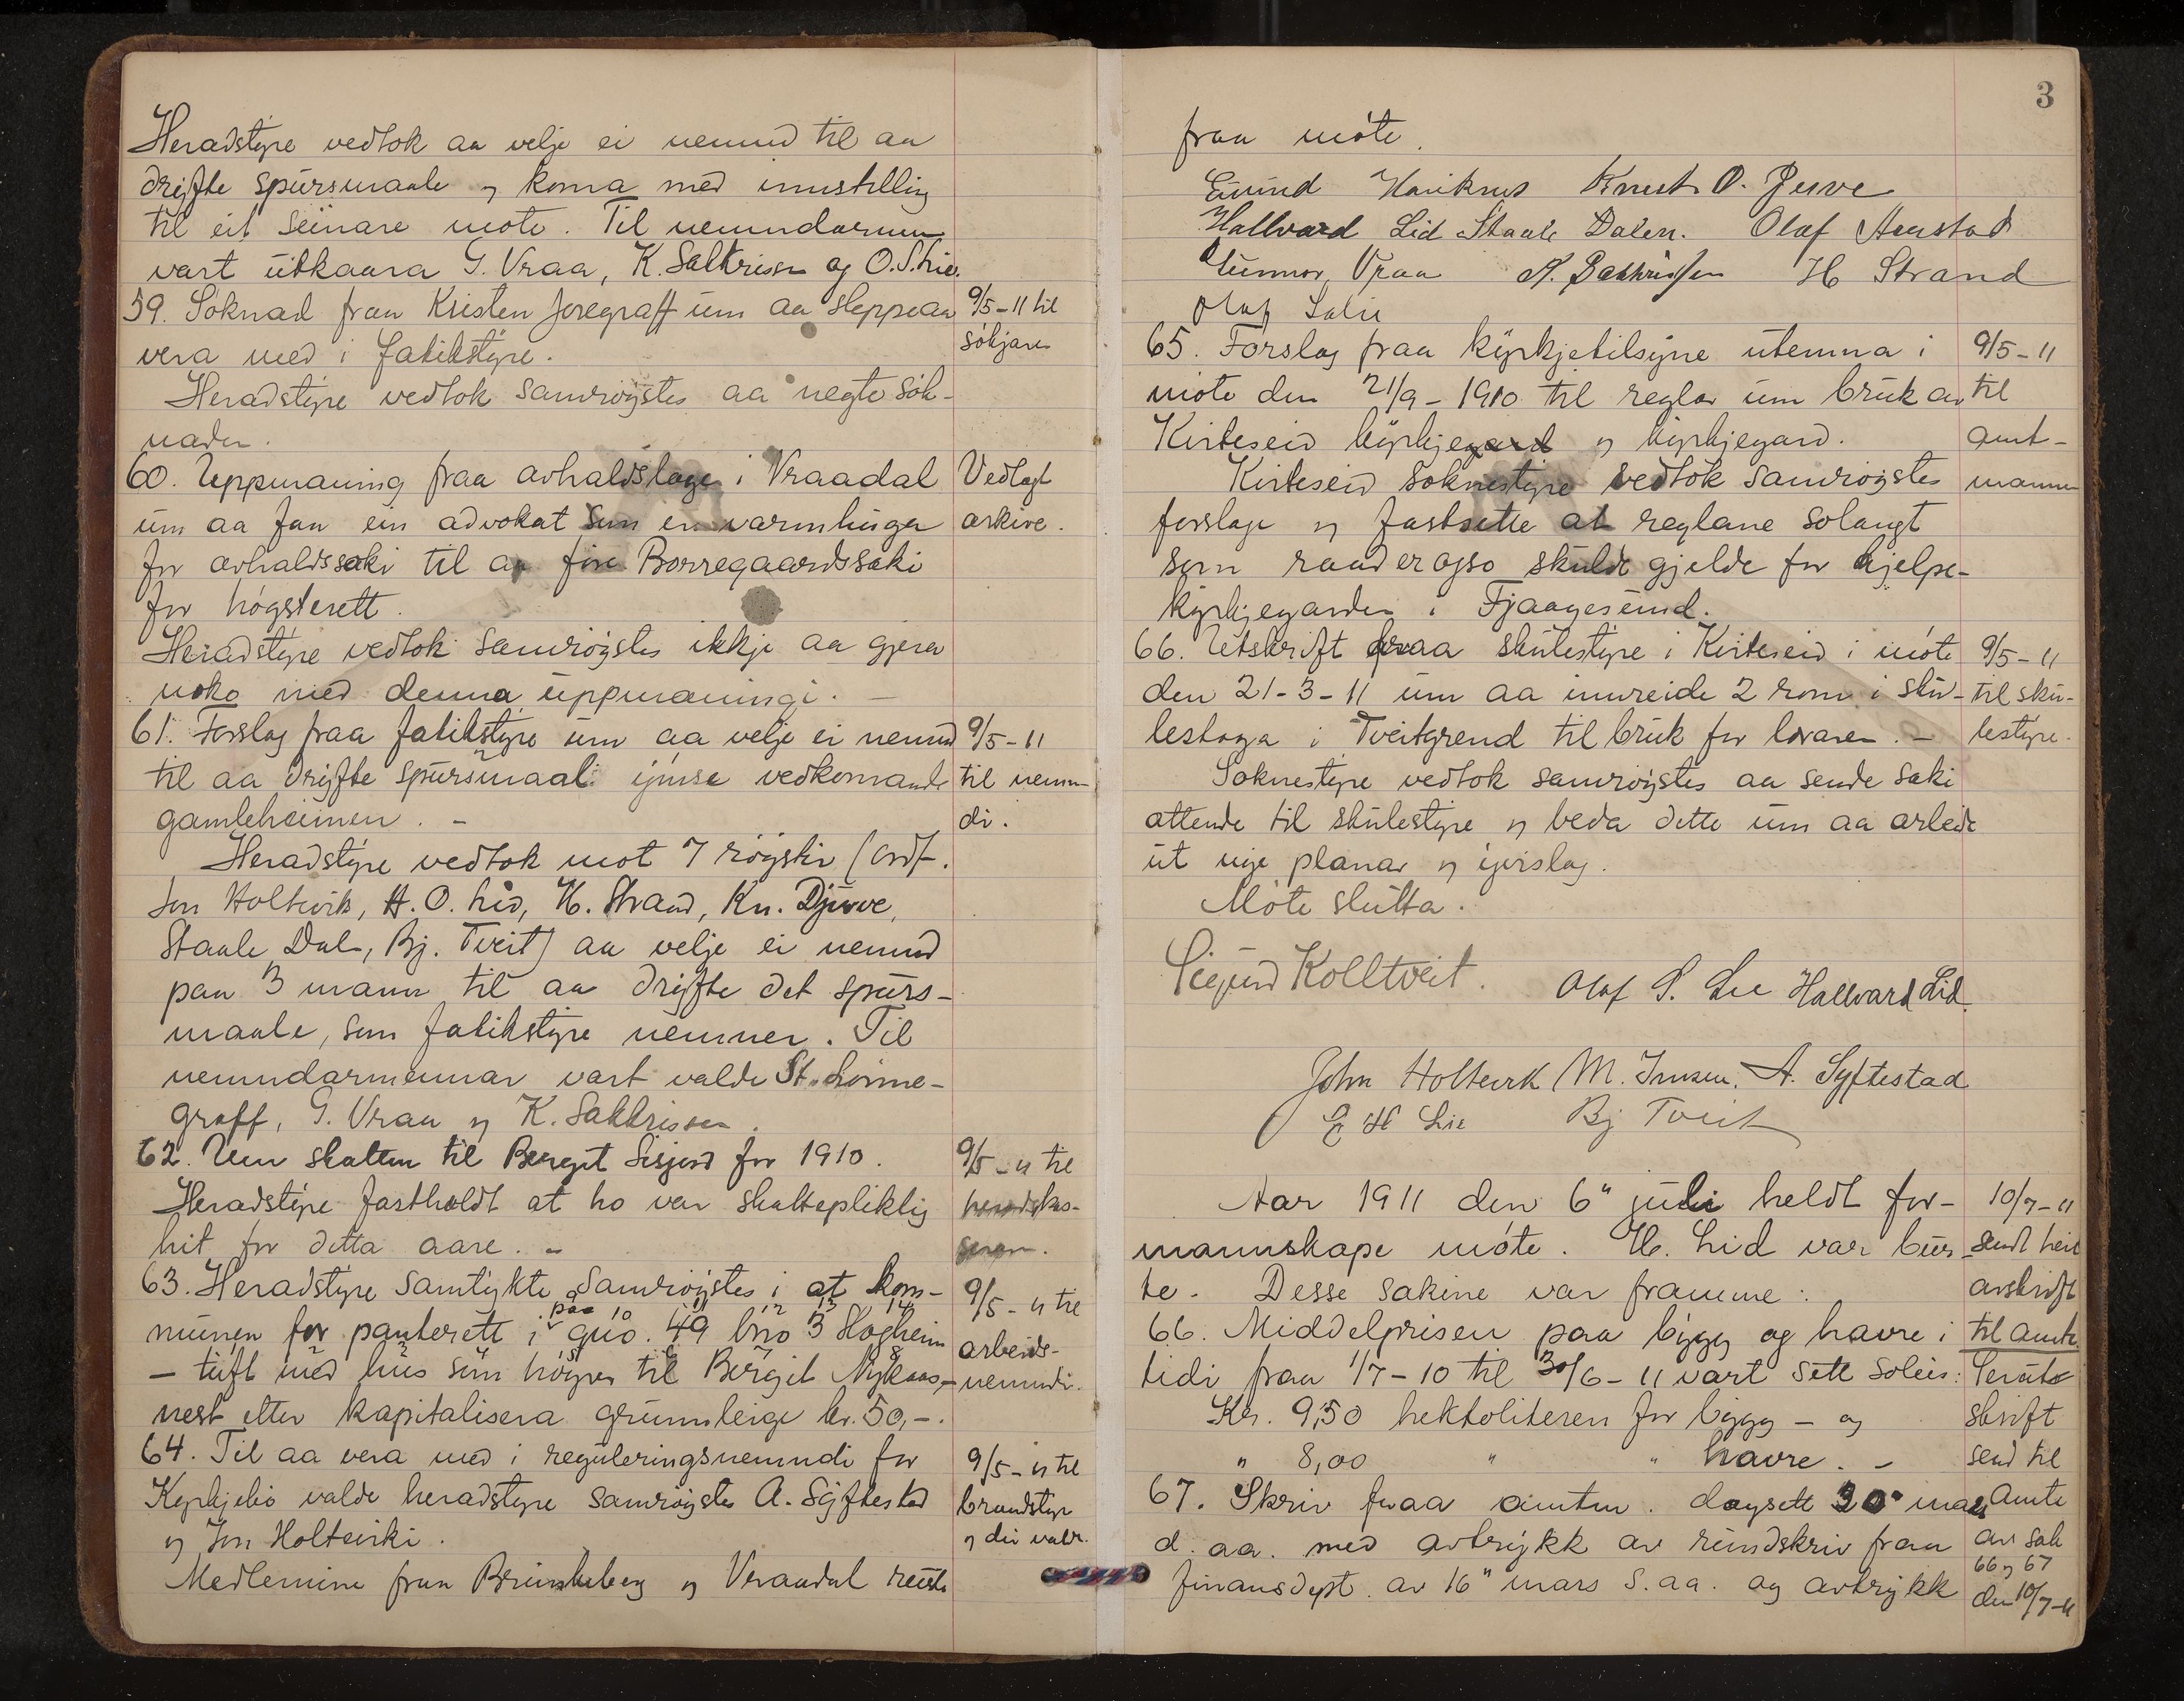 Heradstyre vedtok aa velje ei nemnd til aa
drøfte spursmaale og koma med innstilling
til eit seinare møte. Til nemndarmenn
vart utkaara G. Vraa, K. Sakkrisen og O. S. Lie.
59. Søknad fraa Kristen Joregraff um aa sleppe aa
vera med i fatikstyre.
9/5-11 til
søkjaren
Heradstyre vedtok samrøystes aa negte søk-
naden.
60. Uppmaning fraa avhaldslage i Vraadal
um aa faa ein advokat sum er varmhuga
for avhaldssaki til aa føre Borregaardssaki
for høgsterett.
Vedlagt
arkive.
Heradstyre vedtok samrøystes ikkje aa gjera
noko med denna uppmaningi. –
61. Forslag fraa fatikstyre um aa velje ei nemnd
til aa drøfte spursmaal ymse vedkomande
gamleheimen. –
9/5-11
til nemn-
di.
Heradstyre vedtok mot 7 røyster (ordf.
Jon Holtvik, H. O. Lid, H. Strand, Kn. Djuve,
Staale Dale, Bj. Tveit) aa velje ei nemnd
paa 3 mann til aa drøfte det spurs-
maale, sum fatikstyre nemner. Til
nemndarmennar vart valde St. Lønne-
graff, G. Vraa og K. Sakkrisen.
62. Um skatten til Bergit Sisjord for 1910.
Heradstyre fastholdt at ho var skattepliktig
hit for detta aare. –
9/5-11 til
heradskas-
seraren.
63. Heradstyre samtykte samrøystes i at kom-
munen for panterett i paa gno. 49 bno 3 Høgheim
– tuft med hus sum høyrer til Bergit Nykaas,
nest etter kapitalisera grunnleige kr. 50,-.
9/5-11 til
arbeids-
nemndi.
64. Til aa vera med i reguleringsnemndi for
Kyrkjebø valde heradstyre samrøystes A. Syftestad
og Jon Holtviki.
9/5-11 til
brandstyre
og dei valde.
Medlemine fraa Brunkeberg og Vraadal reiste
3
fraa møte.
Eivind Knut O. Juve
Hallvard Lid Staale Dalen. Olaf Aamstad
Gunnar Vraa K. Sakkrissen H Strand
Olaf
65. Forslag fraa kyrkjetilsyne utemna i
møte den 21/9-1910 til reglar um bruk av
Kviteseid kyrkjegard og kyrkjegard.
9/5-11
til
amt-
mannen
Kviteseid soknestyre vedtok samrøystes
forslage og fastsette at reglane solangt
som raader ogso skulde gjelde for hjelpe-
kyrkjegarden i Fjaagesund.
66. Utskrift fraa skulestyre i Kviteseid i møte
den 21-3-11 um aa innreide 2 rom i sku-
lestoga i Tveitgrend til bruk for læraren. –
9/5-11
til sku-
lestyre.
Soknestyre vedtok samrøystes aa sende saki
attende til skulestyre og beda dette um aa arbeide
ut nye planar og yverslag.
Møte slutta.
Sigurd Kolltveit. Olaf S. Lie Hallvard Lid.
John Holtvik M. Jensen. A. Syftestad
E H Lie Bj Tveit
Aar 1911 den 6" juli heldt for-
mannskape møte. H. Lid var bur-
te. Desse sakine var framme:
10/7-11
sendt heil
avskrift
til amte.
66. Middelprisen paa bygg og havre i
tidi fraa 1/7-10 til 30/6-11 vart sett soleis:
Kr. 9,50 hektoliteren for bygg – og
" 8,00 " " havre. –
skrift
send til
amte
av sak
66 og 67
den 10/7-11
67. Skriv fraa amtm. dagsett 20" mars
d. aa. med avtrykk av rundskriv fraa
finansdept. av 16" mars s. aa. og avtrykk